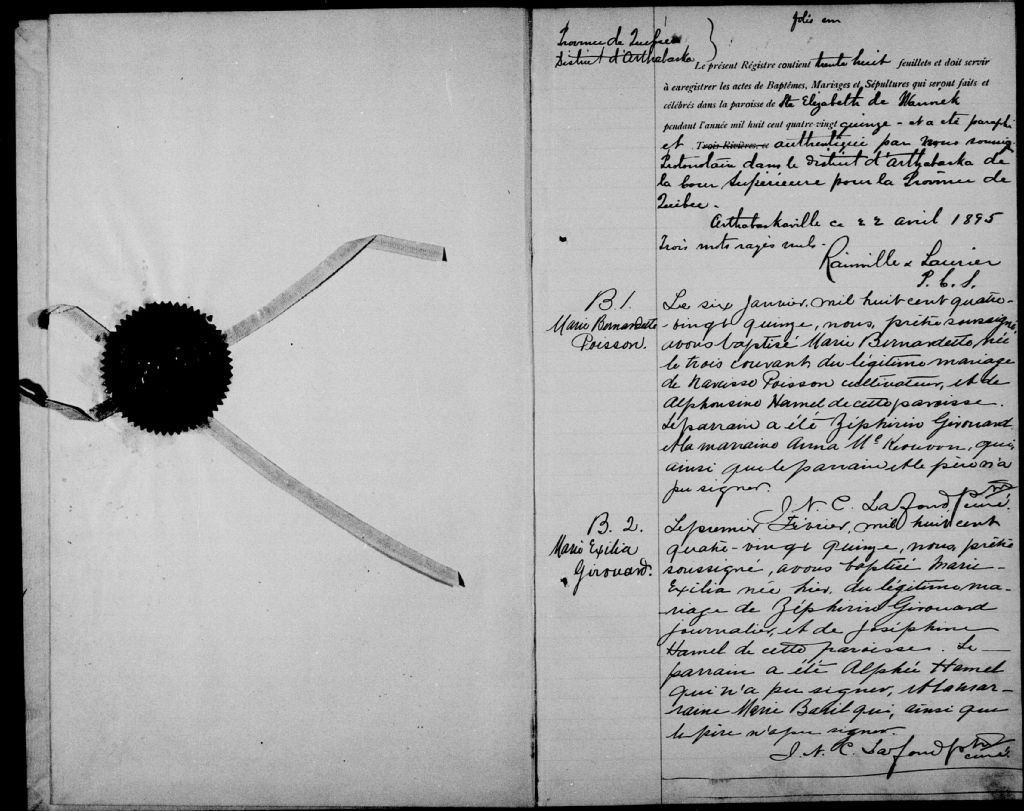 folio
Province de Québec
District d'Arthabaska
Le présent Régistre contient trente huit feuillets et doit servir
à enregistrer les actes de Baptêmes, Mariages et Sépultures qui seront faits et
célébrés dans la paroisse de Ste Elizabeth de Warwick
pendant l'année mil huit cent quatre-vingt quinze - et a été paraphé
et Trois Rivières, ce authentiquée par nous soussig
Protonotaire dans le district d'Arthabaska de
la Cour Supérieure pour la Province de
Québec.
Arthabaskaville ce 22 avril 1895
Trois mots rayés nuls.
Rainville & Laurier
P. C. S.
B 1.
Marie Bernardette
Poisson.
Le six Janvier, mil huit cent quatre-
-vingt quinze, nous, prêtre soussigné,
avons baptisé Marie Bernardette, née
le trois courant du légitime mariage
de Narcisse Poisson cultivateur, et de
Alphonsine Hamel de cette paroisse.
Le parrain a été Zéphirin Girouard
et la marraine Anna Mc Keouvon, qui,
ainsi que le parrain et le père n'a
pu signer.
J. N. C. Lafond ptre
curé.
B. 2.
Marie Exilia
Girouard.
Le premier Février, mil huit cent
quatre-vingt quinze, nous, prêtre
soussigné, avons baptisé Marie-
Exilia née hier, du légitime ma-
riage de Zéphirin Girouard
journalier, et de Joséphine
Hamel de cette paroisse. Le
parrain a été Alphée Hamel
qui n'a pu signer, et la mar-
raine Marie Baril qui, ainsi que
le père n'a pu signer.
J. N. C. Lafond ptre
curé.